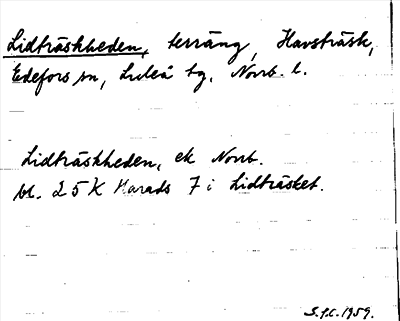 Lidträskheden, terräng, Havsträsk,
Edefors sn, Luleå tg, Norrb. l.
Lidträskheden, ek Norrb.
bl. 25 K Harads 7 i Lidträsket.
S.f.C. 1959.